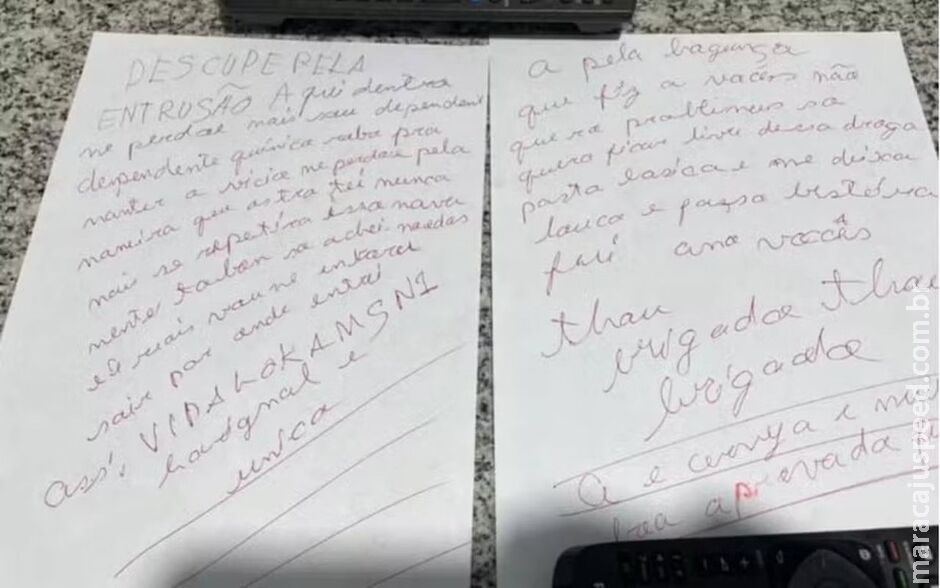 DESCUPE PELA
ENTRUSÃO A qui dentra
me perdoe mais sou dependent
despendente química roba pra
manter a vicia me perdoe pela
maneira que as tra tei nunca
mais se repetira essa nava
mente, taben so achei moedas
e mais vou me
sair por onde entrei
ass: VIDA LOKA MS N1
e
unica
a pela bagunça
que fiz a vaces não
quero problemas so
quero ficar livre dessa droga
pasta basica e me deixa
louca e
feliz ano vaces
thau thau
brigadoe
brigadoe
A e
boa aprovada
maracajuspeed.com.br